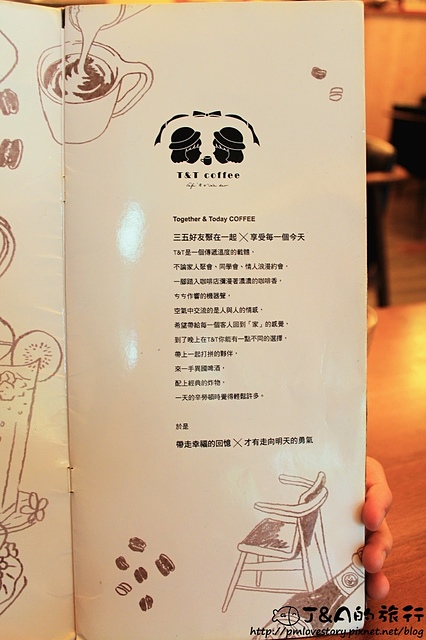 T&T coffee
Together & Today COFFEE
三五好友聚在一起╳享受每一個今天
T&T是一個傳遞溫度的載體，
不論家人聚會、同學會、情人浪漫約會，
一腳踏入咖啡店瀰漫著濃濃的咖啡香，
ㄘㄘ作響的機器聲，
空氣中交流的是人與人的情感，
希望帶給每一個客人回到「家」的感覺，
到了晚上在T&T你能有一點不同的選擇，
帶上一起打拼的夥伴，
來一手異國啤酒，
配上經典的炸物，
一天的辛勞頓時覺得輕鬆許多。
於是
帶走幸福的回憶╳才有走向明天的勇氣
J&A的旅行
http://pmlovestory.pixnet.net/blog